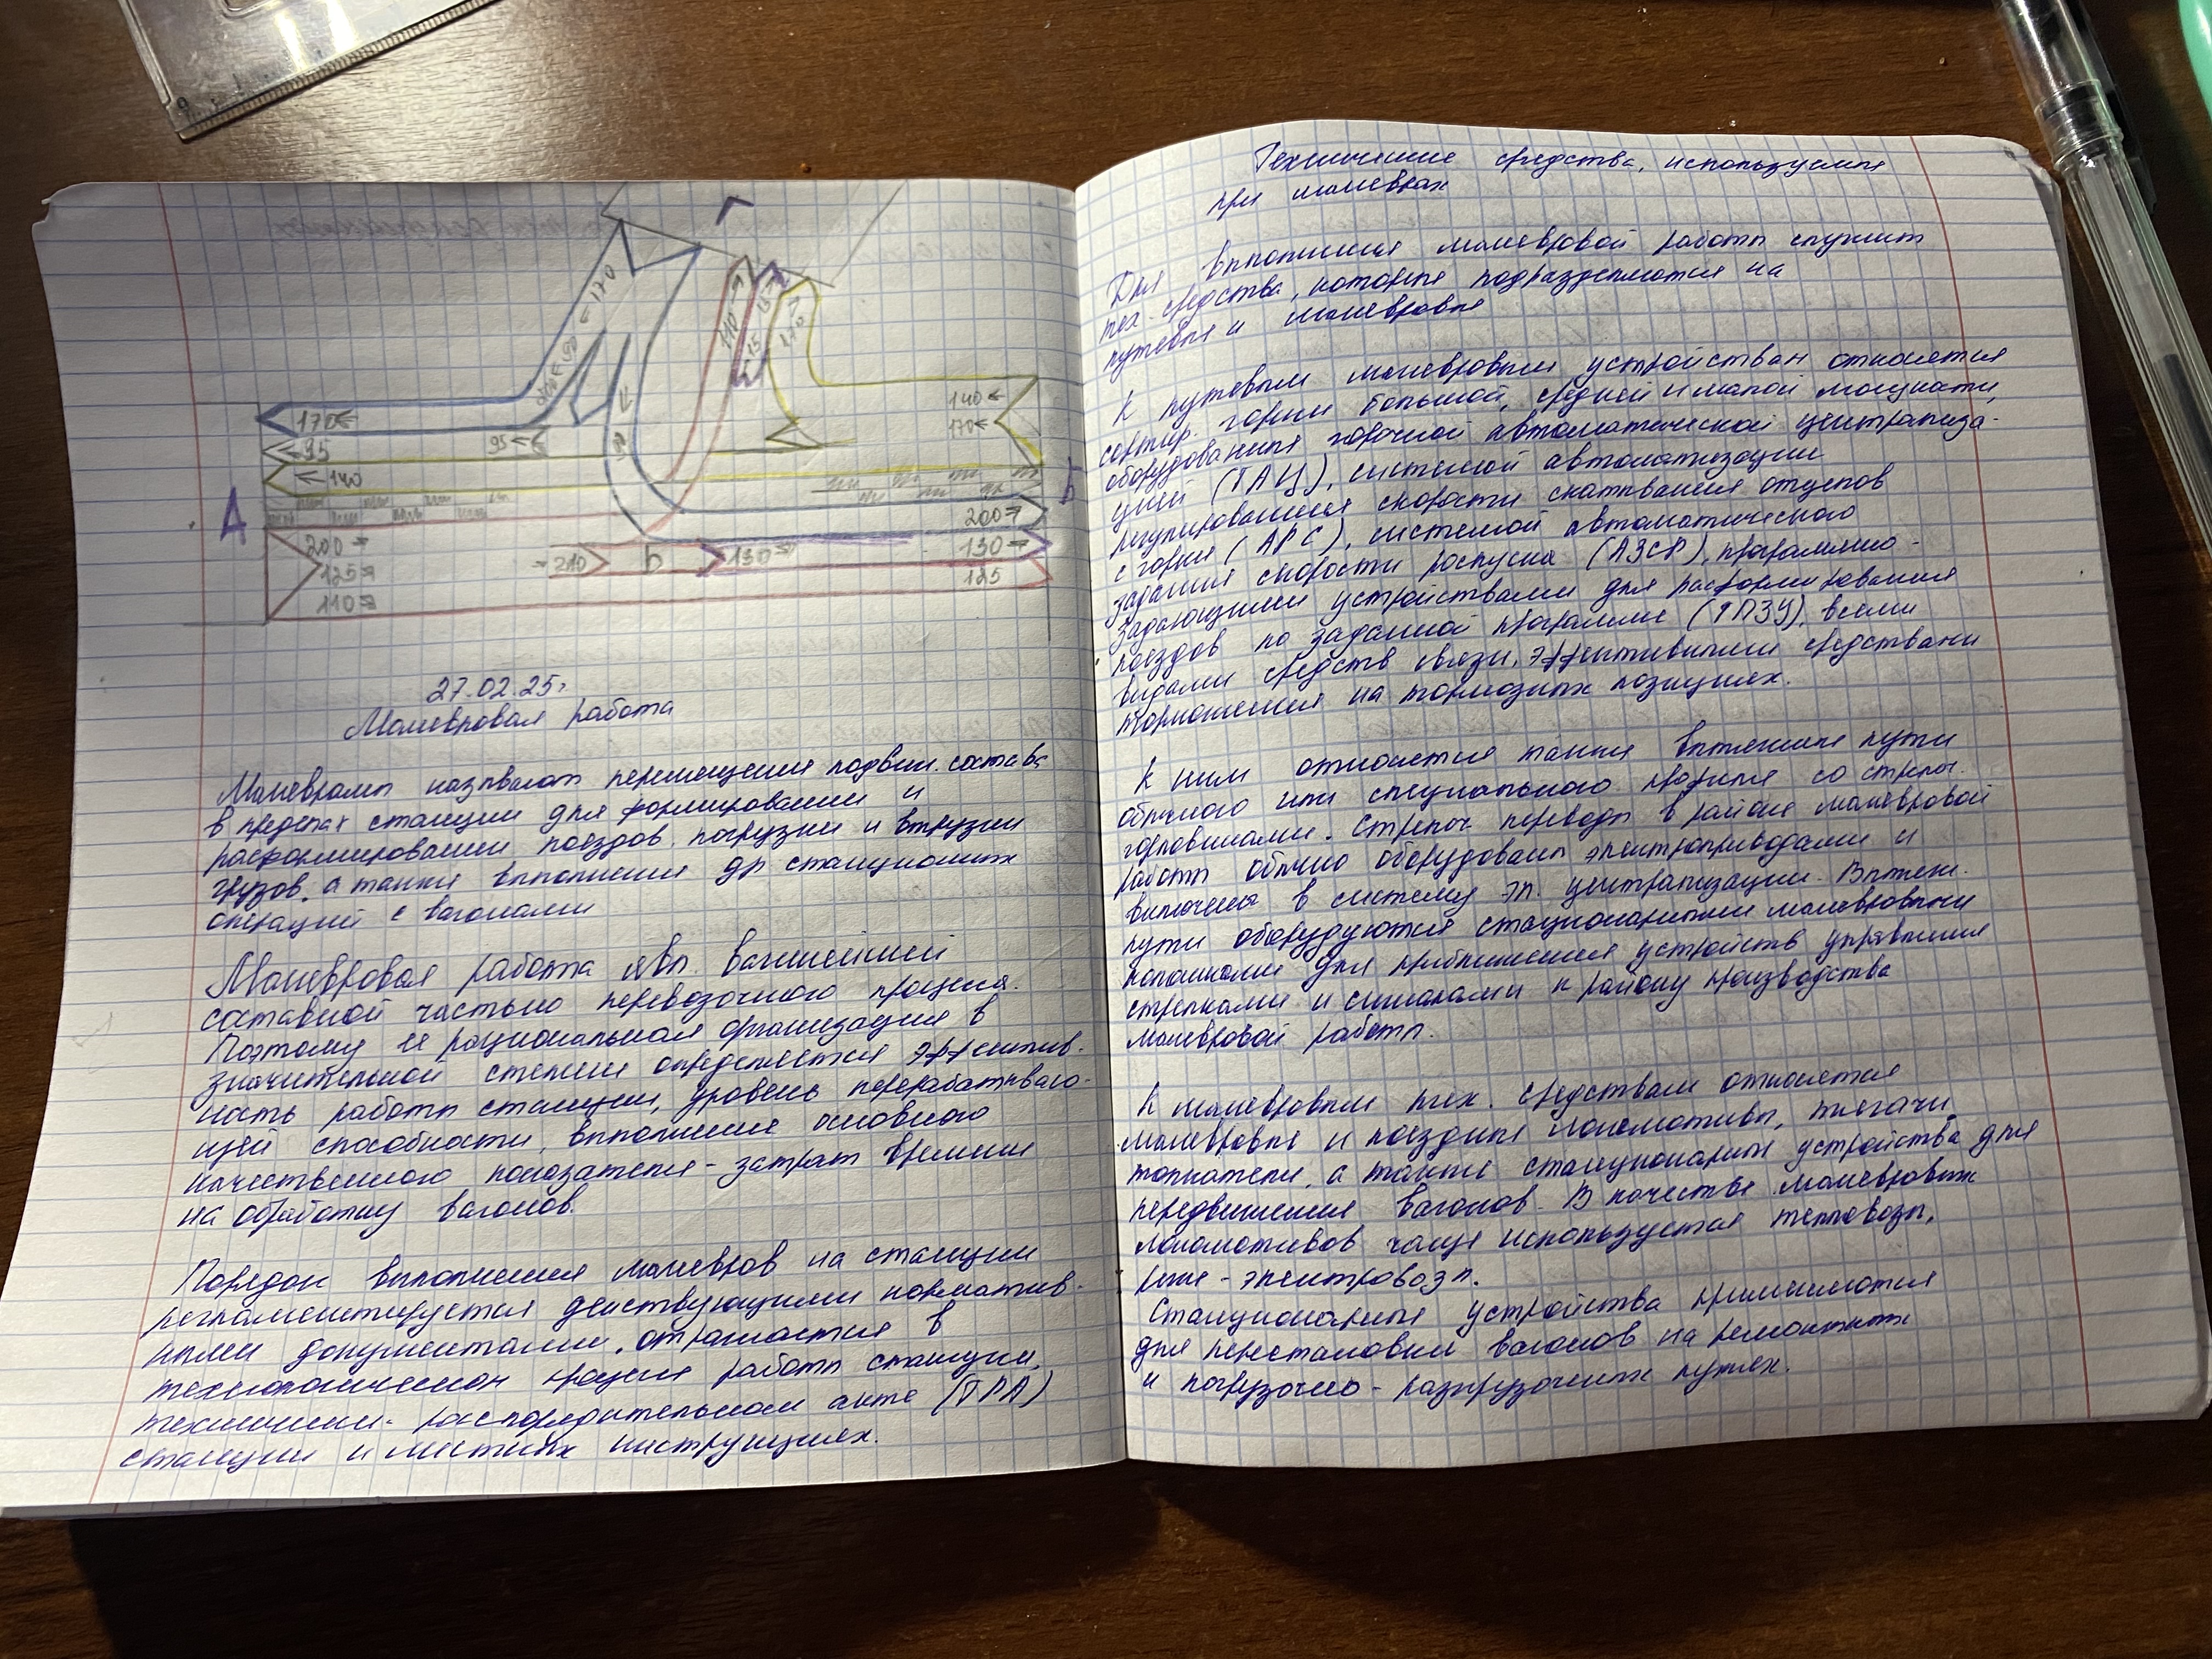 Г
170
170
95
95
140
140
170
110
15
15
110
90
А
Б
200
125
110
210
130
200
130
125
27.02.25г
Маневровая работа
Маневрами называют перемещения подвиж. состава
в пределах станции для формирования и
расформирования поездов, погрузки и выгрузки
грузов, а также выполнения др станционных
операций с вагонами
Маневровая работа явл. важнейшей
составной частью перевозочного процесса.
Поэтому ее рациональная организация в
значительной степени определяется эффектив-
ность работы станции, уровень перерабатываю-
щей способности, выполнение основного
качественного показателя - затрат времени
на обработку вагонов.
Порядок выполнения маневров на станции
регламентируется действующими норматив-
ными документами, отражается в
технологическом процессе работы станции,
техническо- распорядительном акте (ТРА)
станции и местных инструкциях.
Технические средства, используемые
при маневрах
Для выполнения маневровой работы служит
тех. средства, которые подразделяются на
путевые и маневровые
К путевым маневровым устройствам относятся
сортир. горки большой, средней и малой мощности,
оборудования горочной автоматической централиза-
цией (ГАЦ), системой автоматизации
регулирования скорости скатывания отцепов
с горки (АРС), системой автоматического
задания скорости роспуска (АЗСР), программно-
задающими устройствами для расформирования
поездов по заданной программе (ГПЗУ), всеми
видами средств связи, эффективными средствами
торможения на тормозных позициях.
К ним относятся также вытяжные пути
обычного или специального профиля со стрелоч.
горловинами. Стрелоч переводы в районе маневровой
работы обычно оборудованы электроприводами и
включены в систему эл. централизации. Вытяжн.
пути оборудуются стационарными маневровыми
колонками для приближения устройств управления
стрелками и сигналами к району производства
маневровой работы.
К маневровым тех. средствам относятся
маневровые и поездные локомотивы, тягачи,
толкатели, а также стационарные устройства для
передвижения вагонов. В качестве маневровых
локомотивов чаще используется тепловозы,
реже - электровозы.
Стационарные устройства применяются
для перестановки вагонов на ремонтных
и погрузочно - разгрузочных путях.